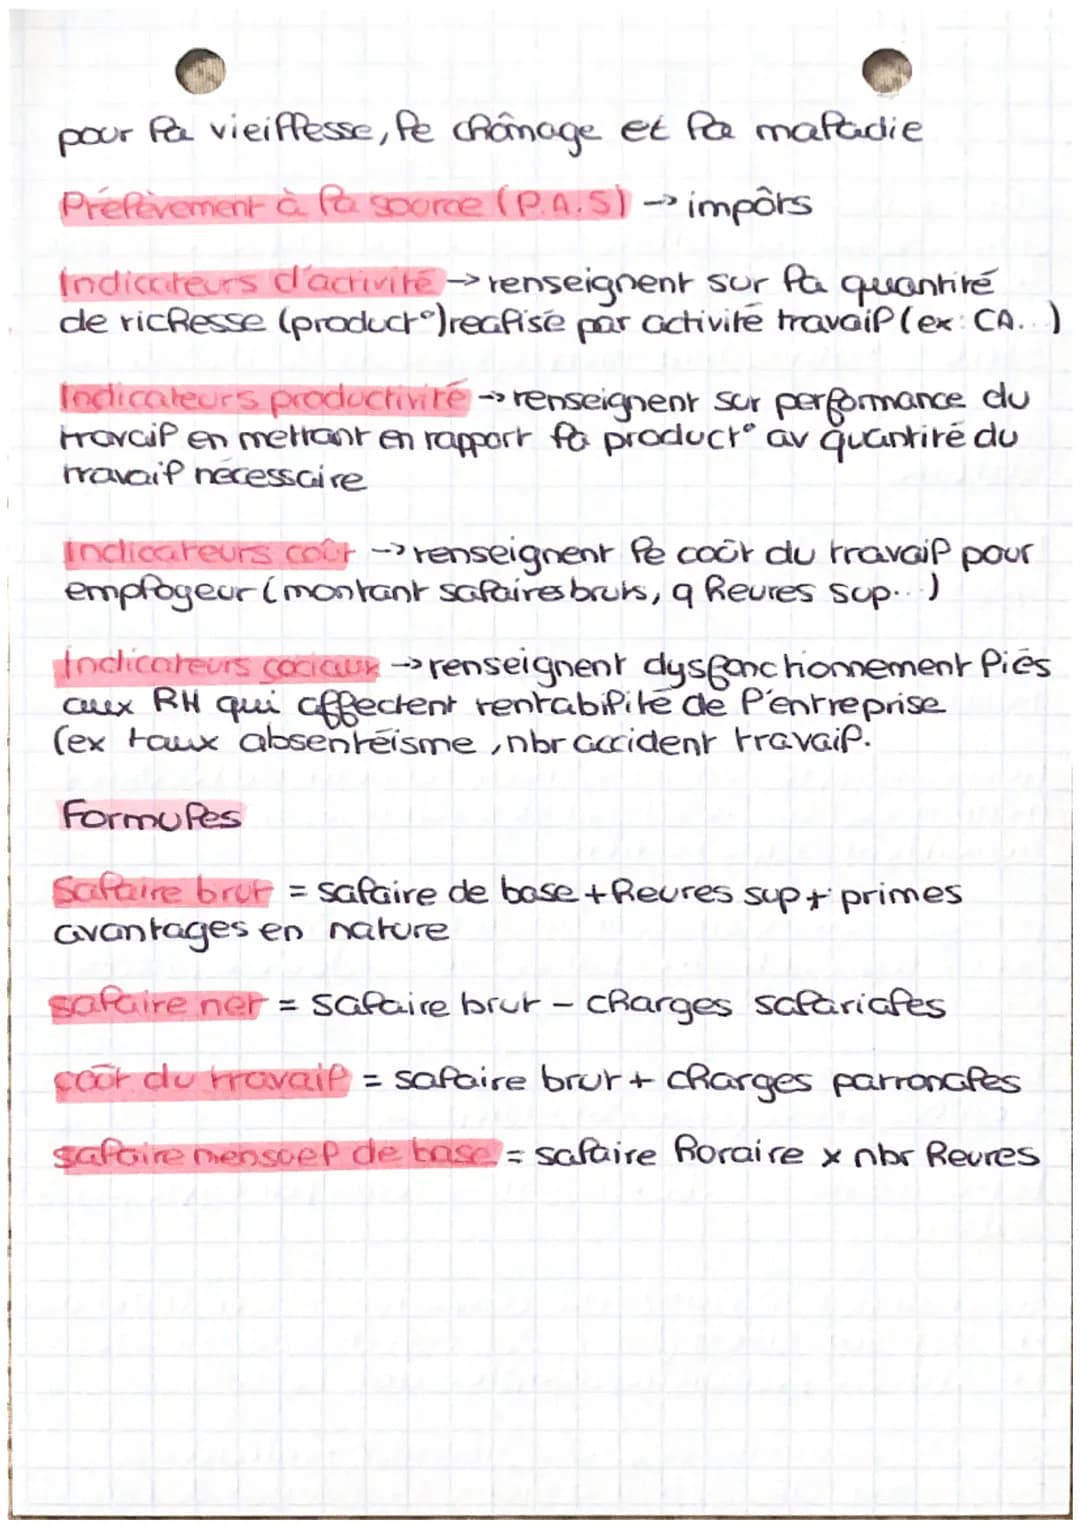 pour la vieillesse, le chômage et la maladie
Prélèvement à la source (P.A.S) → impôts
Indicateurs d'activité → renseignent sur la quantité
de richesse (product°) realisé par activité travail (ex: CA...)
Indicateurs productivité → renseignent sur performance du
travail en mettant en rapport la product° av quantité du
travail nécessaire
Indicateurs coût → renseignent le coût du travail pour
employeur (montant salaires bruts, q heures sup...)
Indicateurs sociaux → renseignent dysfonctionnement liés
aux RH qui affectent rentabilité de l'entreprise
(ex taux absentéisme, nbr accident travail.
Formules
Salaire brut = salaire de base + heures sup + primes
avantages en nature
salaire net = salaire brut - charges salariales
coût du travail = salaire brut + charges patronales
salaire mensuel de base = salaire horaire x nbr heures